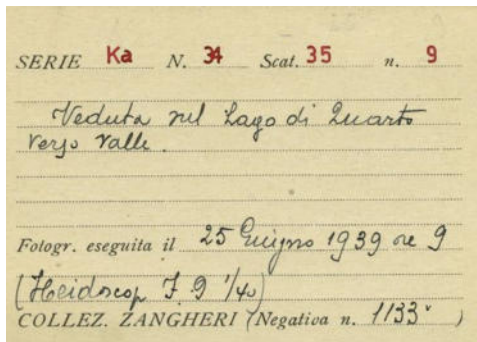 SERIE Ka N. 34 Scat. 35 n. 9
Veduta sul Lago di Quarto
verso valle.
Fotogr. eseguita il 25 Giugno 1939 ore 9
(Heidoscop F. 9 1/40)
COLLEZ. ZANGHERI (Negativa n. 1133 )